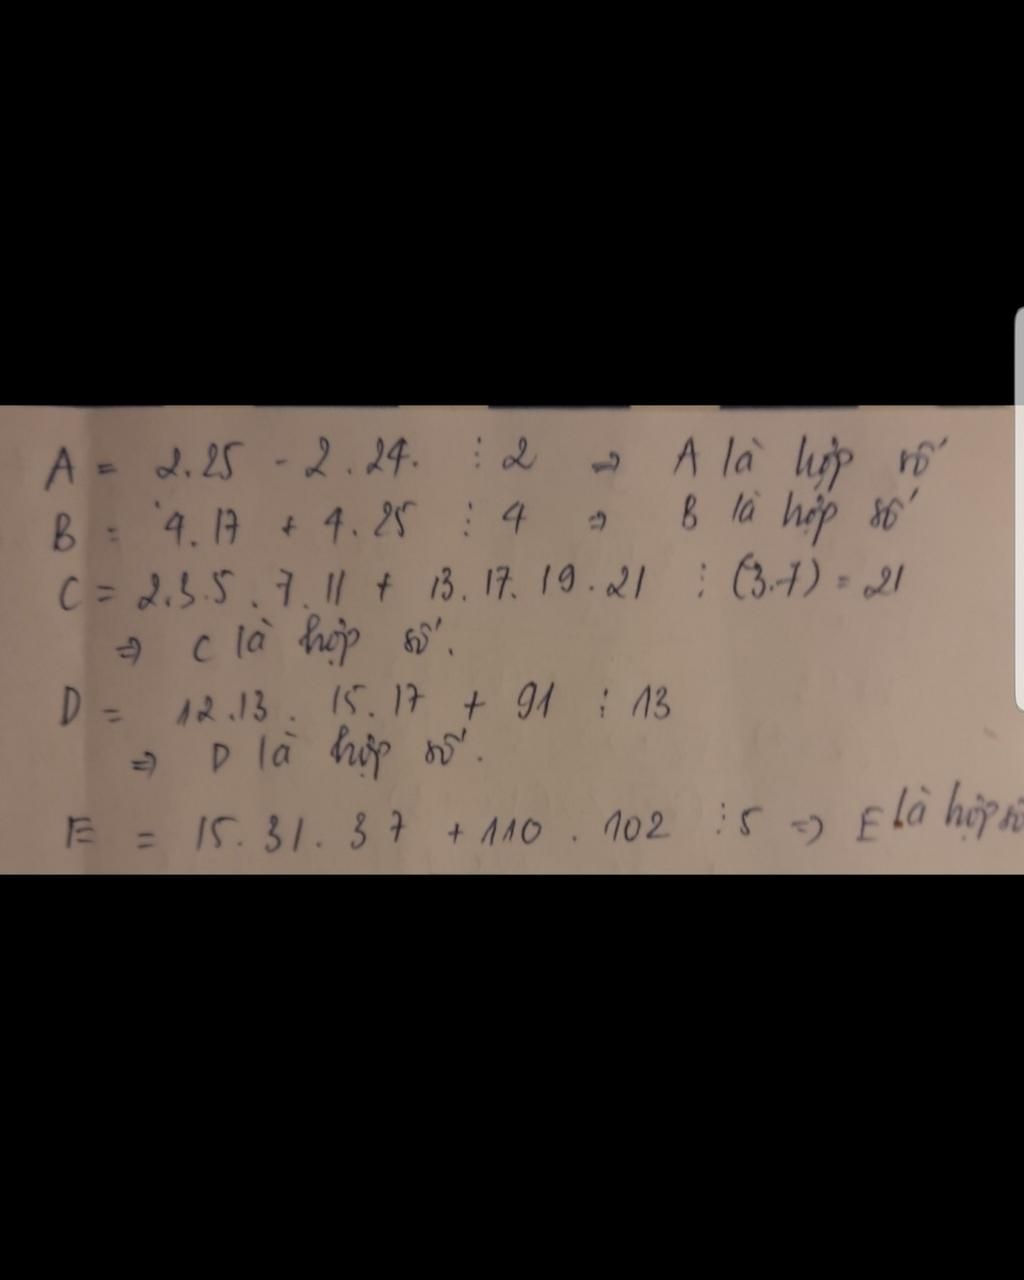 A = 2.25 - 2.24. ⋮ 2 => A là hợp số
B = 4.17 + 4.25 ⋮ 4 => B là hợp số
C = 2.3.5.7.11 + 13.17.19.21 ⋮ (3.7) = 21
=> C là hợp số.
D = 12.13.15.17 + 91 ⋮ 13
=> D là hợp số.
E = 15.31.37 + 110.102 ⋮ 5 => E là hợp số